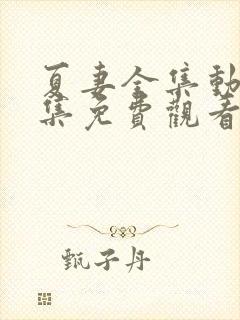 夏妻全集動
集免費觀看
甄子丹